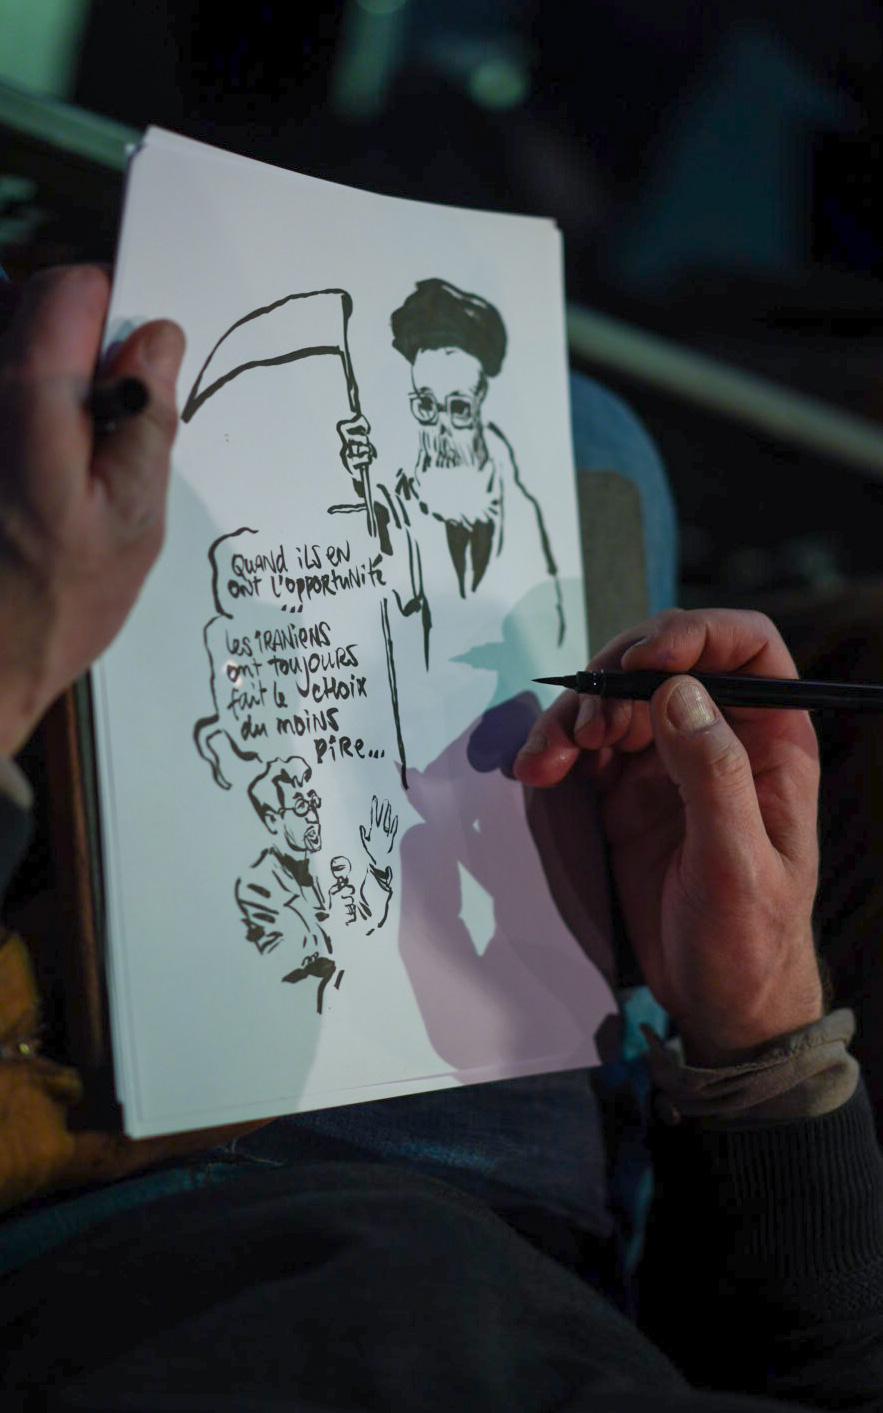 QUAND ilS EN
ont l'opportuNité
...
les iRANiENS
ont toujours
fait le choix
du moins
pire...